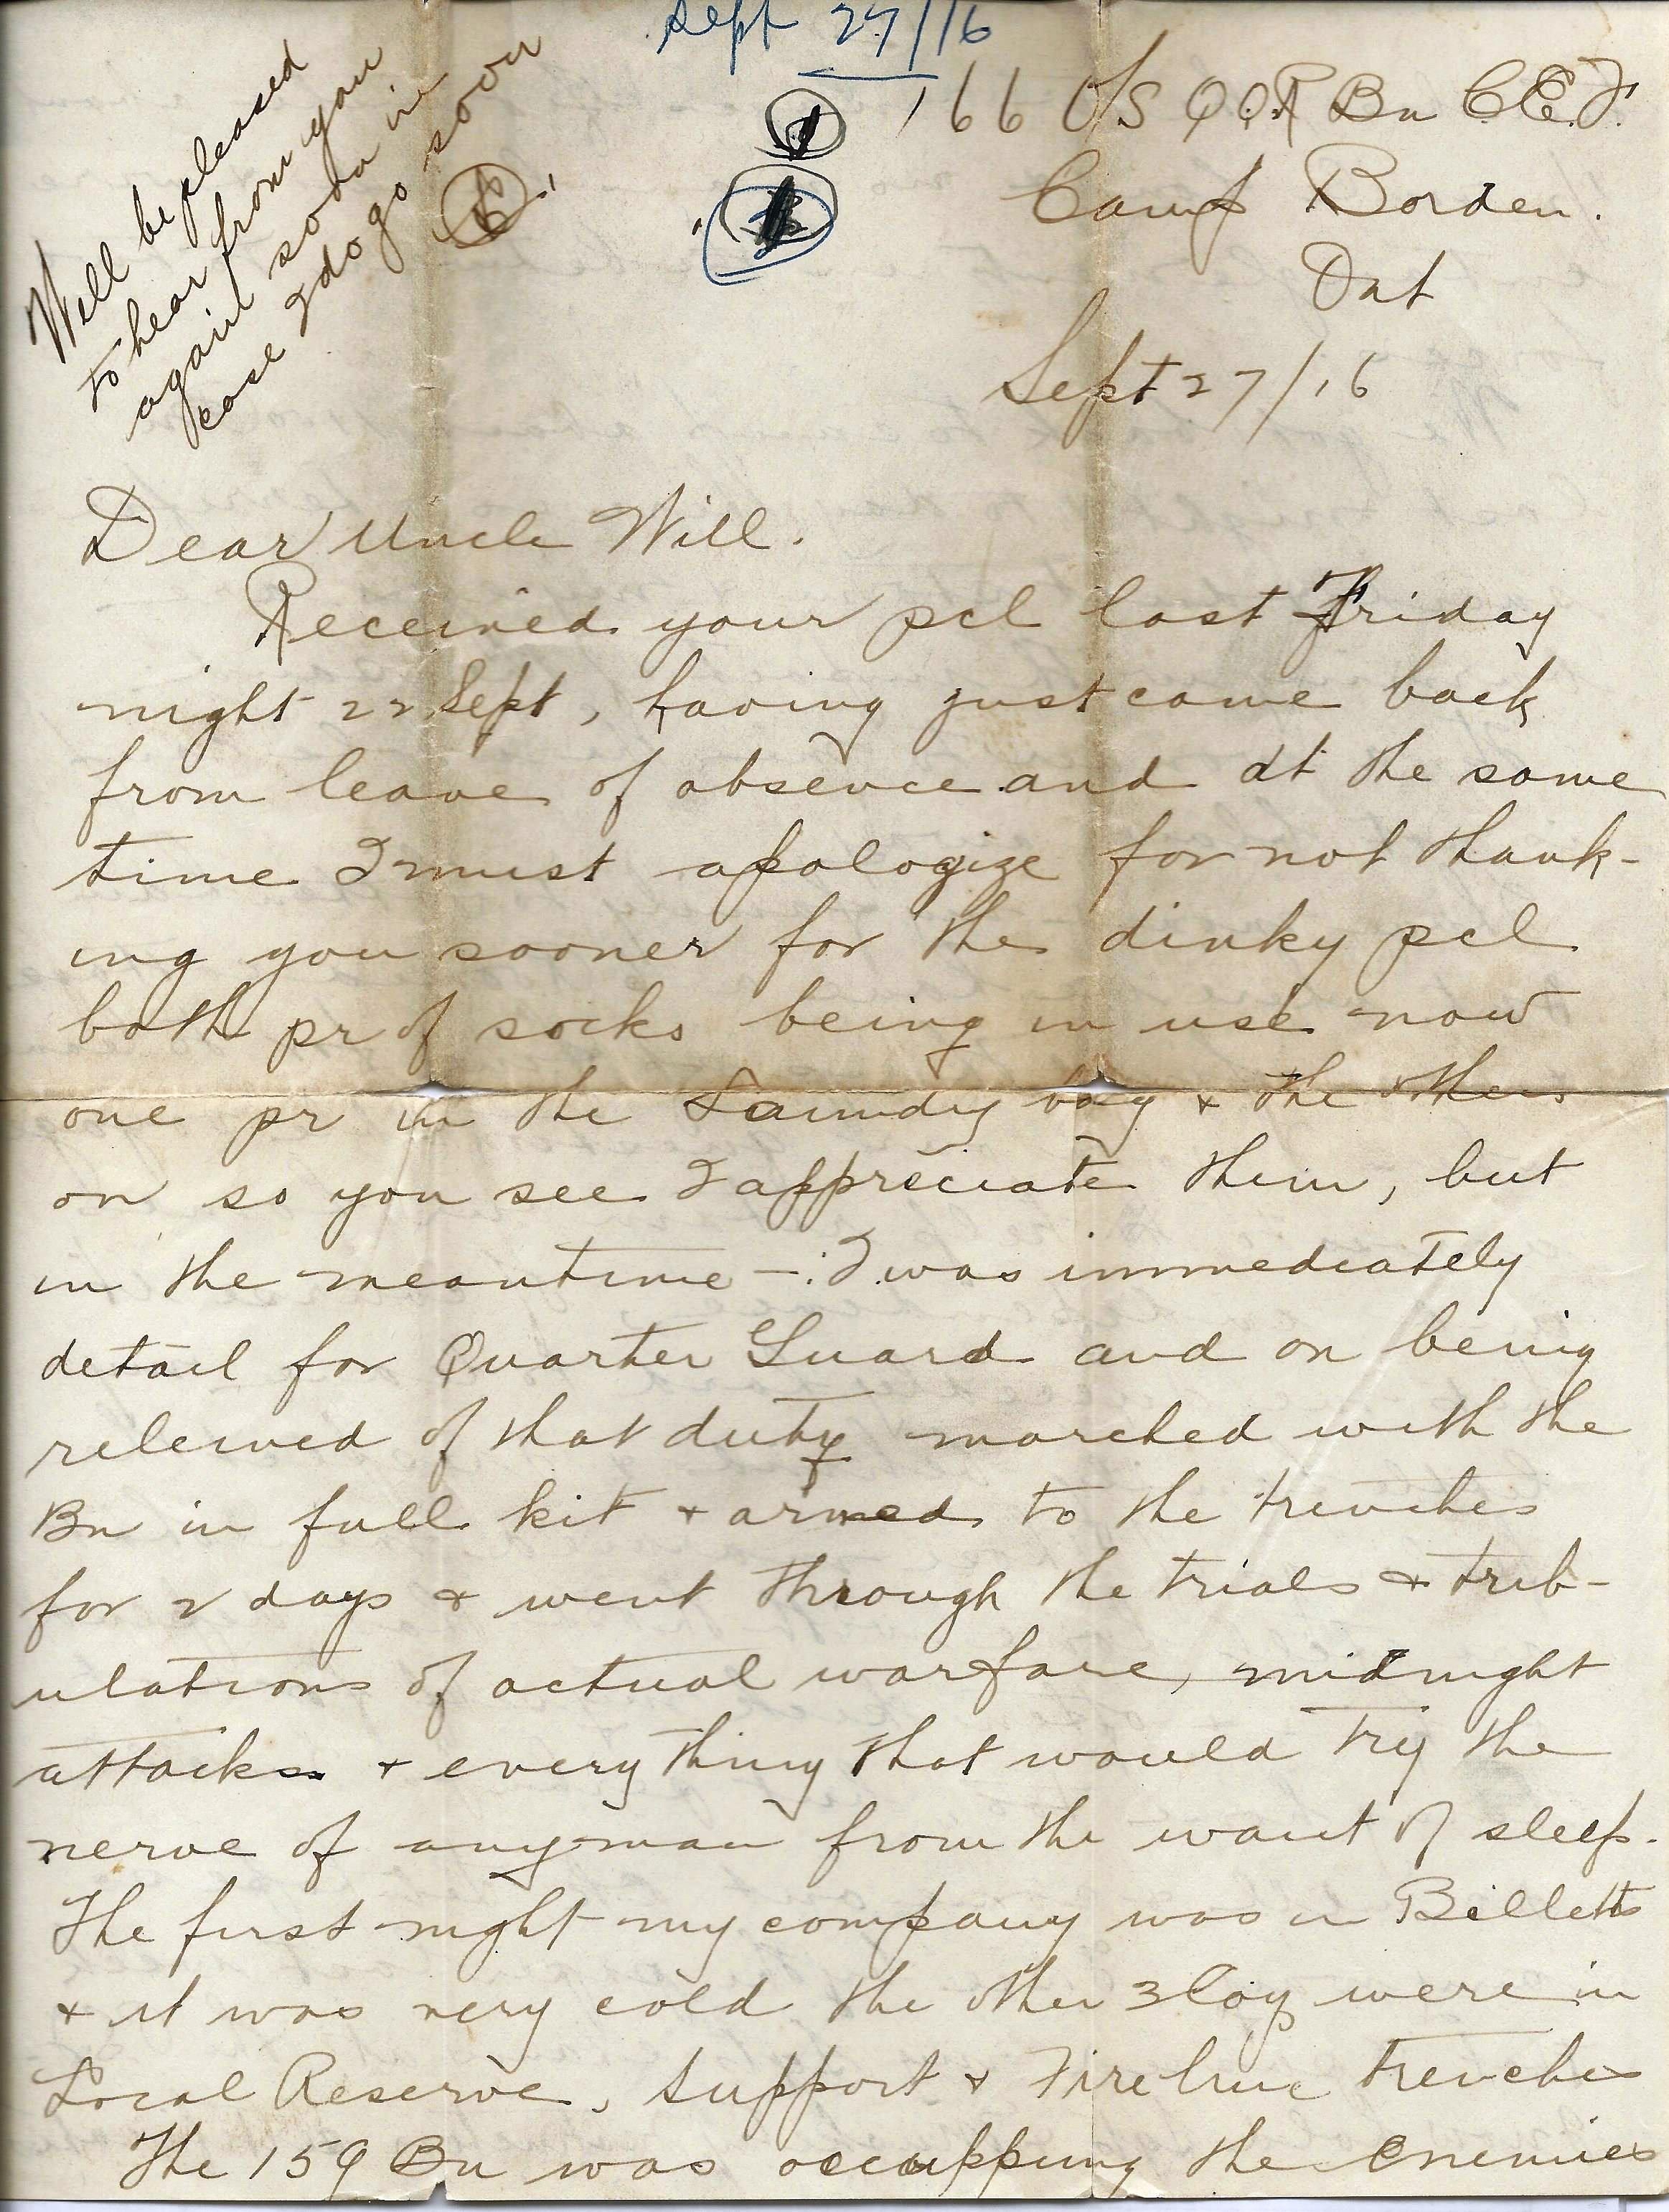 Sept 27/16
Will be pleased
to hear from you
again soon in
case I do go soon
166 O/S QOR Bn C.E.F.
Camp Borden.
Ont
Sept 27/16
Dear Uncle Will.
Received your pcl last Friday
night 22 Sept, having just came back
from leave of absence and at the same
time I must apologize for not thank-
ing you sooner for the dinky pcl
both pr of socks being in use now
one pr in the Laundry bag & the others
on so you see I appreciate them, but
in the meantime - I was immediately
detail for Quarter Guard and on being
releived of that duty marched with the
Bn in full kit & armed to the trenches
for 2 days & went through the trials & trib-
ulations of actual warfare, midnight
attacks & everything that would try the
nerve of anyman from the want of sleep.
The first night my company was in Billetts
& it was very cold the other 3 Coy were in
Local Reserve, Support & Fireline trenches
The 159 Bn was occuppung the Enemies